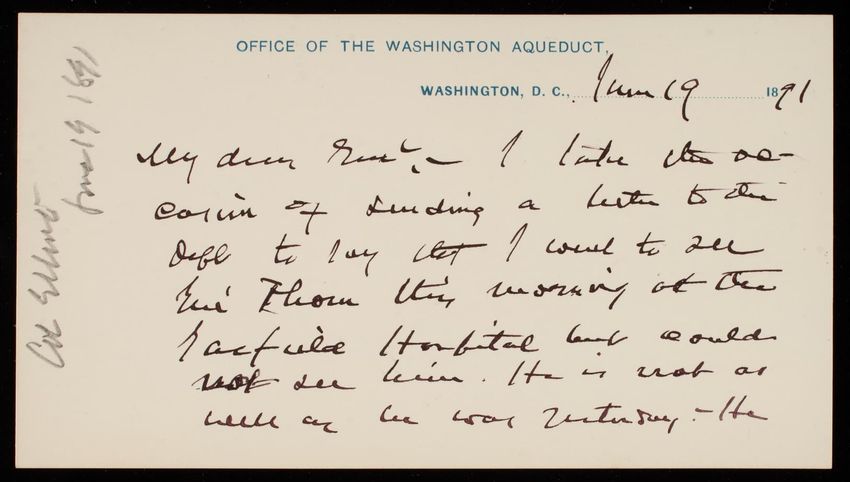 OFFICE OF THE WASHINGTON AQUEDUCT,
WASHINGTON, D. C., June 19 1891
My dear Genl, - I take the oc-
casion of sending a letter to the
Dept to say that I went to see
Genl Thom this morning at the
Garfield Hospital but could
not see him. He is not as
well as he was yesterday - He
Col Elliot
June 19 1891